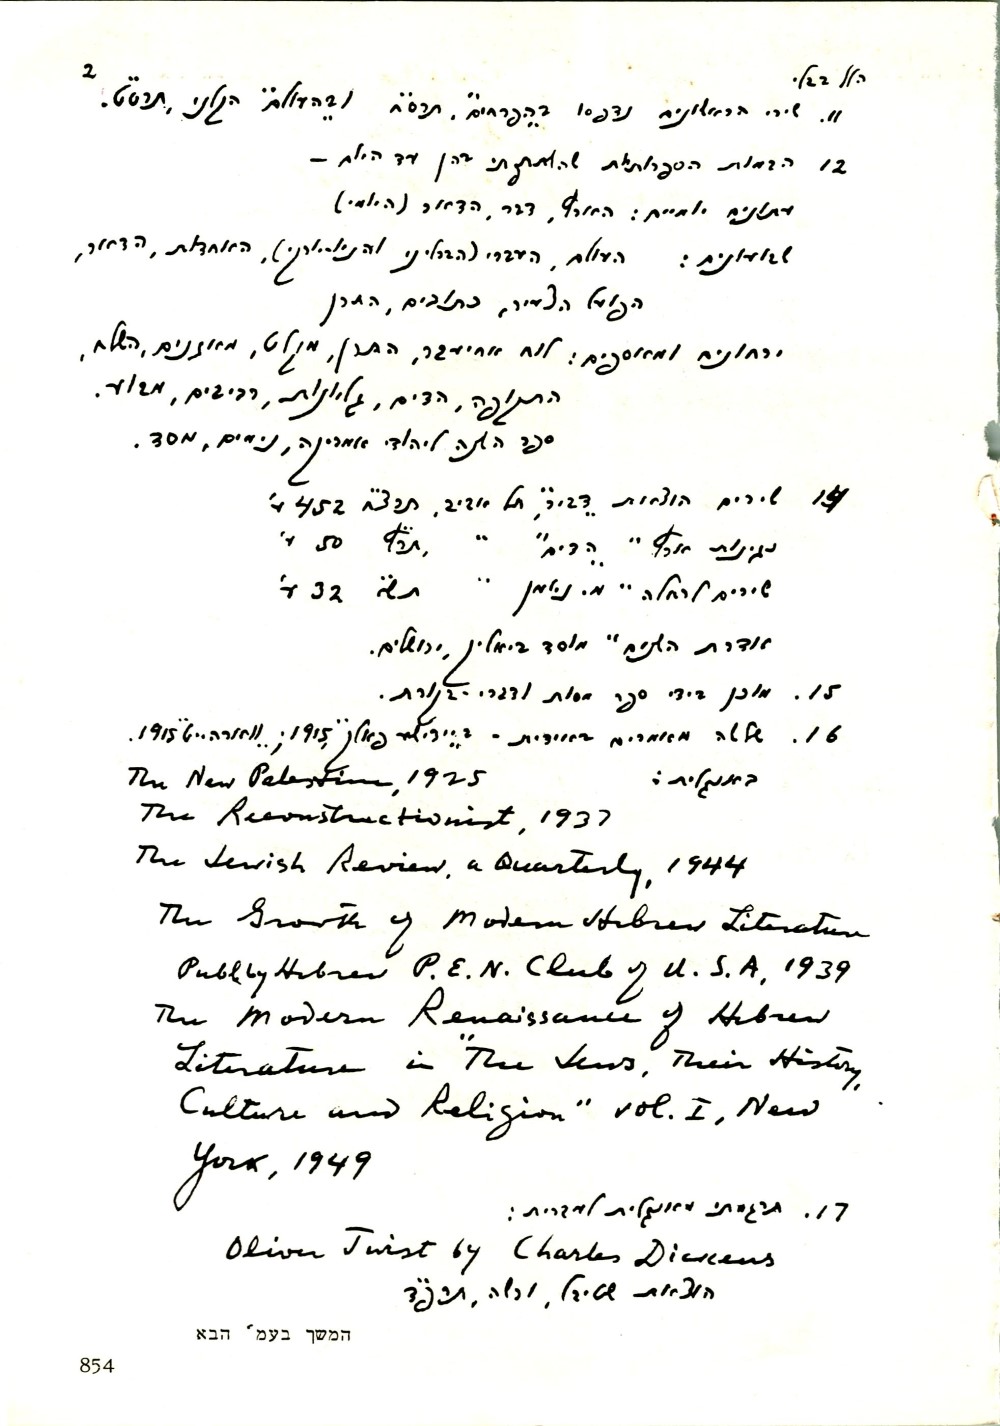 הלל בבלי
2
11. שירי הראשונים נדפסו ב"הפרחים", תרס"ח וב"העולם" הוילנאי, תרס"ט.
12 הבמות הספרותיות שהשתתפתי בהן עד היום –
עתונים יומיים: הארץ, דבר, הדואר (היומי)
שבועונים: העולם, העברי (הברליני והניו-יורקי), האחדות, הדואר,
הפועל הצעיר, כתובים, התרן
ירחונים ומאספים: לוח אחיעבר, התרן, מקלט, מאזנים, השלח,
התקופה, הדים, גליונות, רביבים, מבוע.
ספר השנה ליהודי אמריקה, נימים, מסד.
14 שירים הוצאת "דביר", תל אביב, תרצ"ח 452 ע'
נגינות ארץ " "הדים" " , ת"ש 50 ע'
שירים לראלה " מ. ניומן " תש" 32 ע'
אדרת השנים" מוסד ביאליק, ירושלים.
15. מוכן בידי ספר מסות ודברי-בקורת.
16. שלשה מאמרים באידית - ב 1915; 1915.
באנגלית:
The New Palestine, 1925
The Reconstructionist, 1937
The Jewish Review, a Quarterly, 1944
The Growth of Modern Hebrew Literature
Publ. by Hebrew P.E.N. Club of U.S.A, 1939
The Modern Renaissance of Hebrew
Literature in "The Jews, Their History,
Culture and Religion" vol. I, New
York, 1949
17. תרגמתי מאנגלית לעברית:
Oliver Twist by Charles Dickens
הוצאת שטיבל, ורשה, תרפ"ד
המשך בעמ' הבא
854